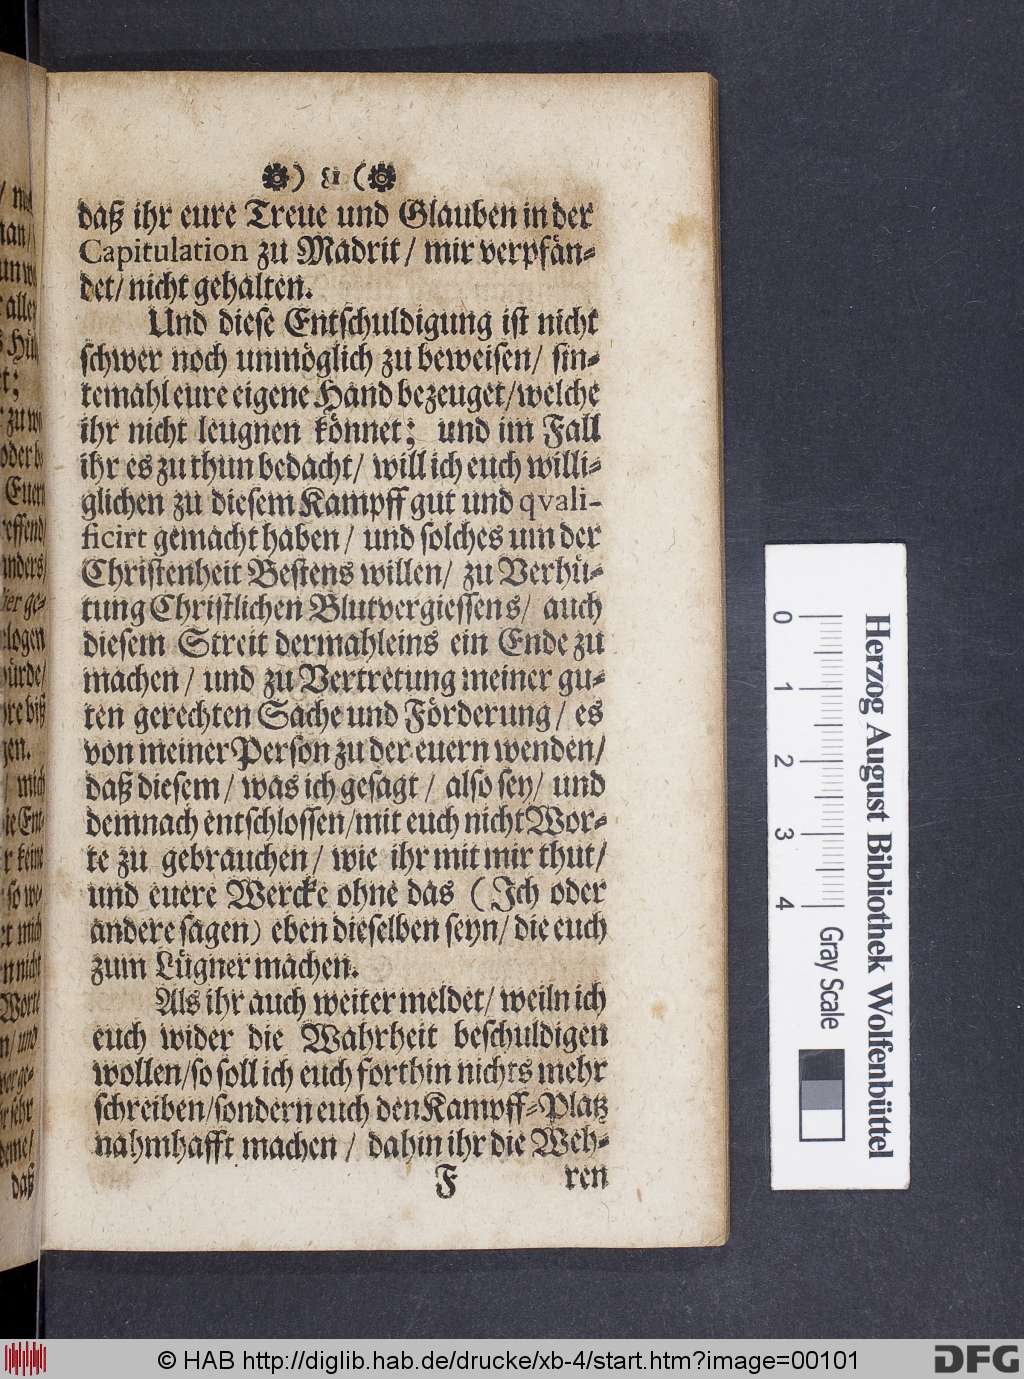 ) 81 (
daß ihr eure Treue und Glauben in der
Capitulation zu Madrit/ mir verpfän-
det/ nicht gehalten.
Und diese Entschuldigung ist nicht
schwer noch unmöglich zu beweisen/ sin-
temahl eure eigene Hand bezeuget/ welche
ihr nicht leugnen könnet; und im Fall
ihr es zu thun bedacht/ will ich euch willi-
glichen zu diesem Kampff gut und qvali-
ficirt gemacht haben/ und solches um der
Christenheit Bestens willen/ zu Verhü-
tung Christlichen Blutvergiessens/ auch
diesem Streit dermahleins ein Ende zu
machen/ und zu Vertretung meiner gu-
ten gerechten Sache und Förderung/ es
von meiner Person zu der euern wenden/
daß diesem/ was ich gesagt/ also sey/ und
demnach entschlossen/ mit euch nicht Wor-
te zu gebrauchen/ wie ihr mit mir thut/
und euere Wercke ohne das (Ich oder
andere sagen) eben dieselben seyn/ die euch
zum Lügner machen.
Als ihr auch weiter meldet/ weiln ich
euch wider die Wahrheit beschuldigen
wollen/ so soll ich euch forthin nichts mehr
schreiben/ sondern euch den Kampff-Platz
nahmhafft machen/ dahin ihr die Weh-
F ren
Herzog August Bibliothek Wolfenbüttel
0 1 2 3 4 Gray Scale
© HAB http://diglib.hab.de/drucke/xb-4/start.htm?image=00101
DFG